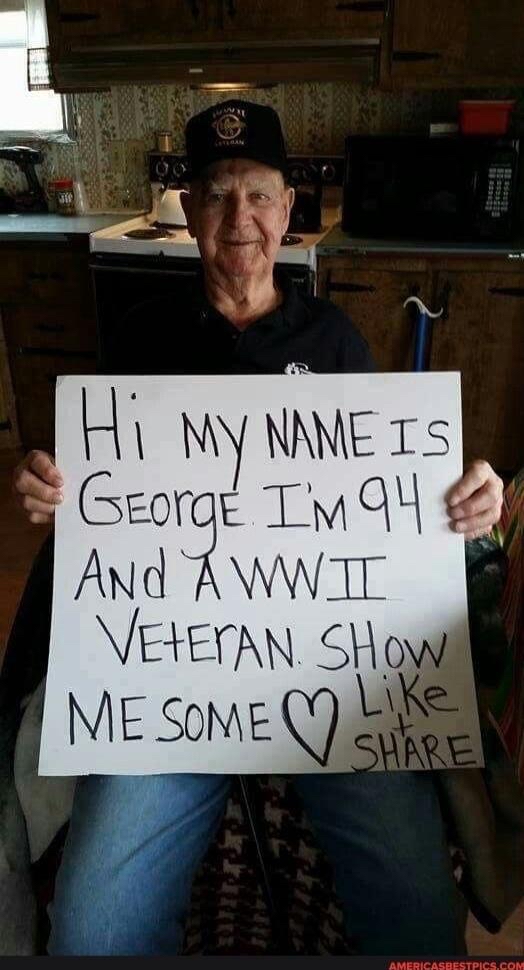 VETERAN
Hi MY NAME IS
GEOrgE. I'M 94
ANd A WWII
VEtErAN. SHOW
ME SOME ♡ LiKe
+
SHARE
AMERICASBESTPICS.COM